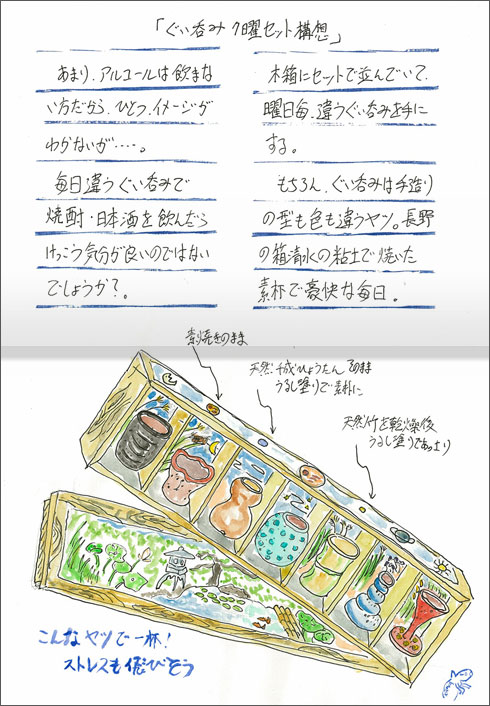 「ぐい呑み7曜セット構想」
あまり、アルコールは飲まな
い方だから、ひとつ、イメージが
わかないが‥‥。
毎日違うぐい呑みで
焼酎・日本酒を飲んだら
けっこう気分が良いのではない
でしょうか?。
木箱にセットで並んでいて、
曜日毎、違うぐい呑みを手に
する。
もちろん、ぐい呑みは手造り
の型も色も違うヤツ。長野
の箱清水の粘土で焼いた
素杯で豪快な毎日。
素焼きのまま
天然 千成ひょうたん そのまま
うるし塗りで素朴に
天然竹を乾燥後
うるし塗りであっさり
こんなヤツで一杯!
ストレスも飛びそう